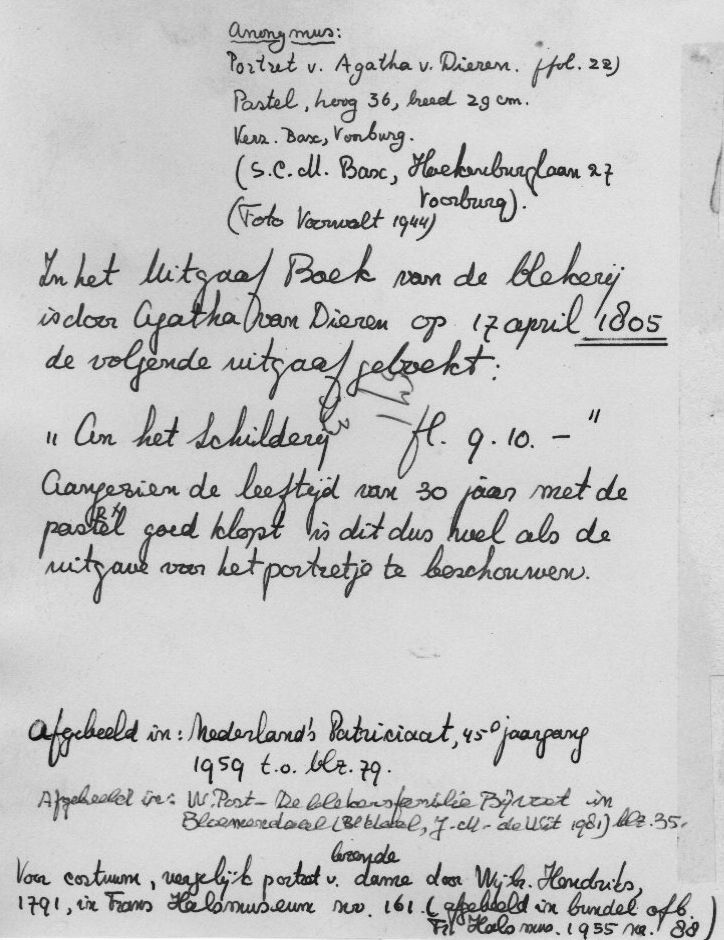 Anonymus:
Portret v. Agatha v. Dieren. (fol. 22)
Pastel, hoog 36, breed 29 cm.
Verz. Bax, Voorburg.
(S.C.M. Bax, Hoekenburglaan 27
Voorburg).
(Foto Voorvalt 1944)
In het Uitgaaf Boek van de blekerij
is door Agatha van Dieren op 17 april 1805
de volgende uitgaaf geboekt:
" An het Schilderij fl. 9.10. — "
Aangezien de leeftijd van 30 jaar met de
pastel goed klopt is dit dus wel als de
uitgave voor het portretje te beschouwen.
Afgebeeld in: Nederland's Patriciaat, 45e jaargang
1959 t.o. blz. 79.
Afgebeeld in: W. Post - De blekersfamilie Bijvoet in
Bloemendaal ( J.M. de Uit 1981) blz. 35.
Voor costuum, vergelijk portret v. dame door Wijbr. Hendriks,
1791, in Frans Halsmuseum no. 161. (afgebeeld in bundel afb.
Fr. Hals mus. 1955 no. 88)